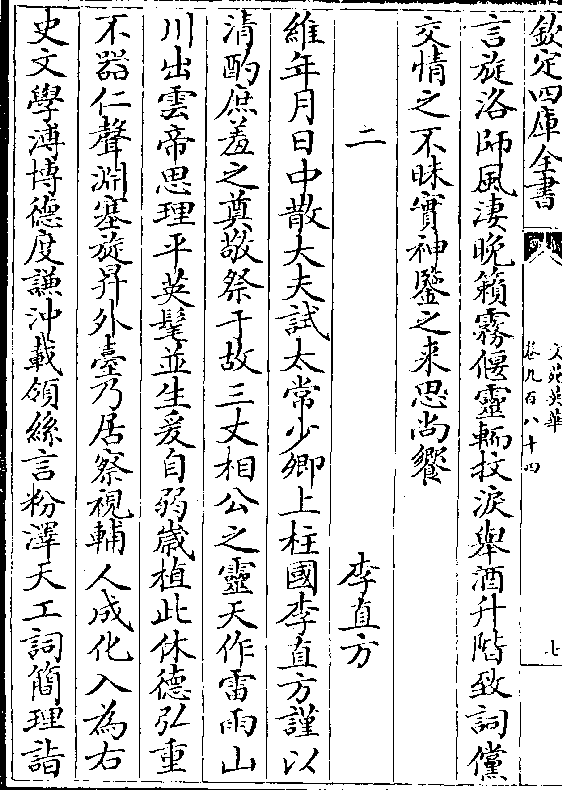 欽定四庫全書
文苑英華
卷九百八十四
七
言旋洛師風淒晚籟霧偃靈輀抆淚舉酒升階致詞儻
交情之不昧實神鑒之來思尚饗
二
李直方
維年月日中散大夫試太常少卿上柱國李直方謹以
清酌庶羞之奠敬祭于故三丈相公之靈天作雷雨山
川出雲帝思理平英髦並生爰自弱嵗植此休德弘重
不器仁聲淵塞旋昇外臺乃居察視輔人成化入為右
史文學溥博德度謙沖載領絲言粉澤天工詞簡理詣